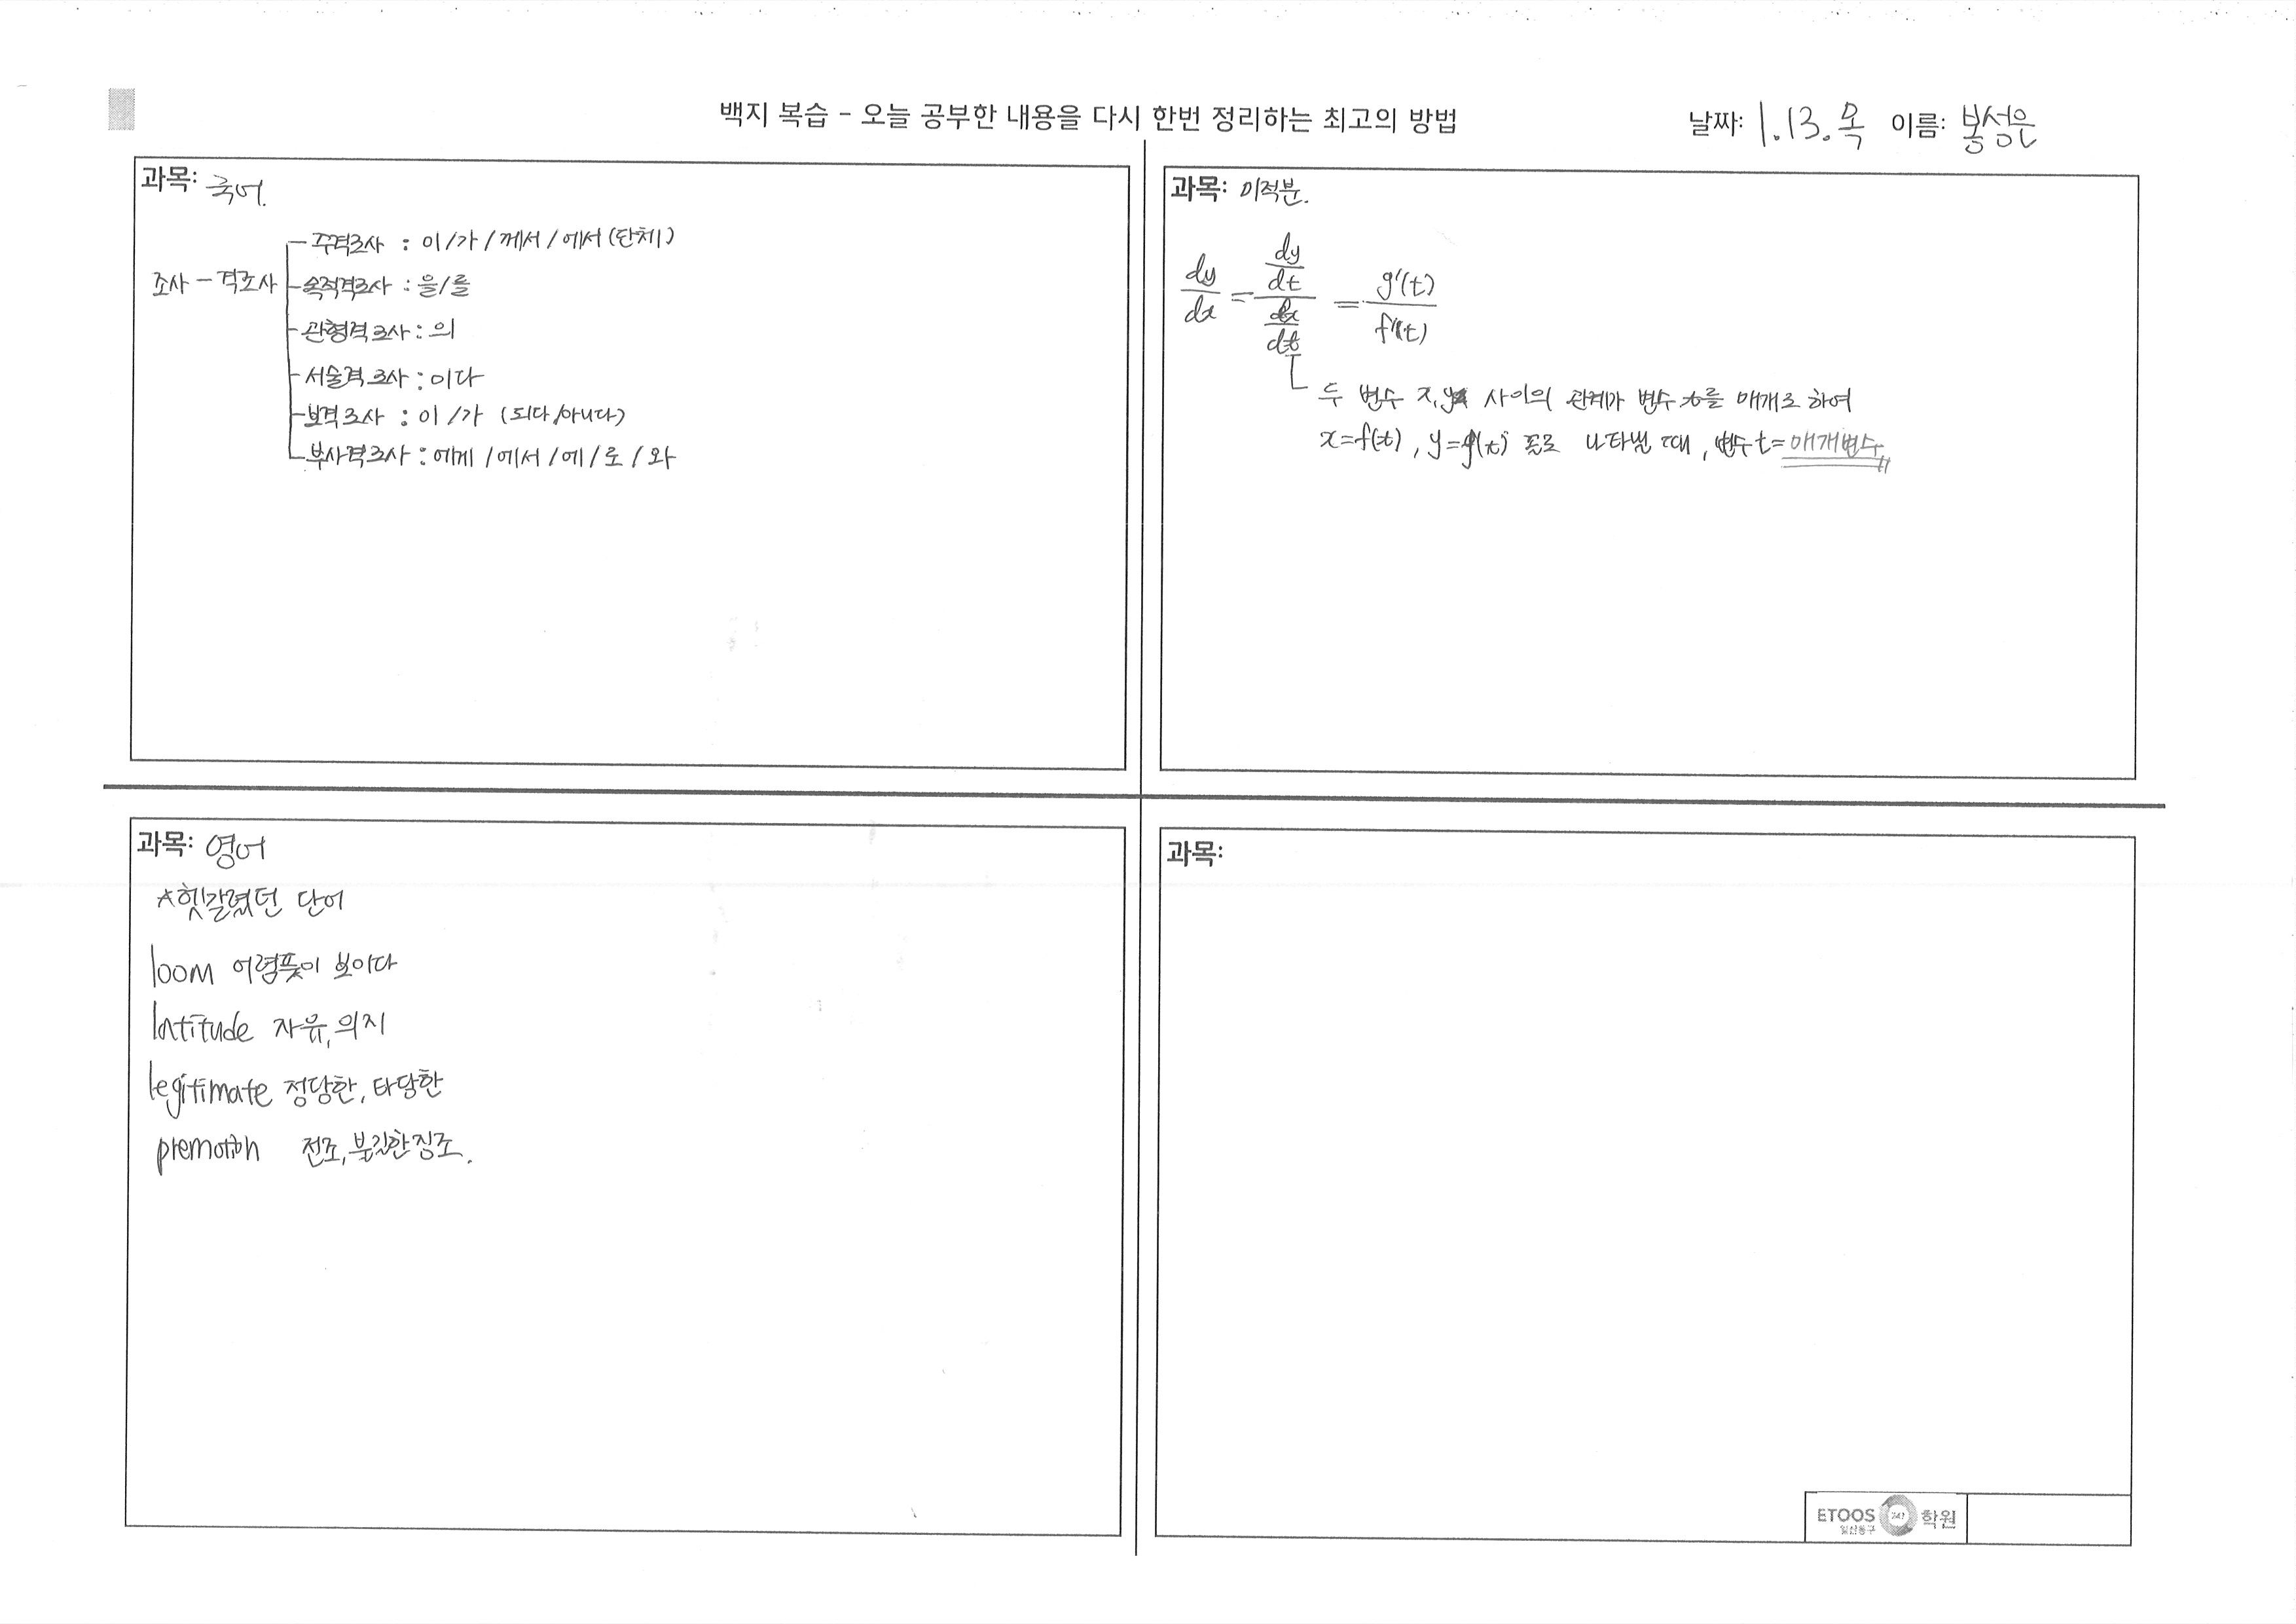 백지 복습 - 오늘 공부한 내용을 다시 한번 정리하는 최고의 방법
날짜: 1.13.목 이름: 봉성은
과목: 국어.
조사 - 격조사
주격조사 : 이/가/께서/에서(단체)
목적격조사 : 을/를
관형격조사 : 의
서술격조사 : 이다
보격조사 : 이/가 (되다/아니다)
부사격조사 : 에게/에서/에/로/와
과목: 미적분.
dy/dx = (dy/dt)/(dx/dt) = g'(t)/f'(t)
두 변수 x, y 사이의 관계가 변수 t를 매개로 하여
x=f(t), y=g(t) 꼴로 나타낼 때, 변수 t = 매개변수
과목: 영어
☆헷갈렸던 단어
loom 어렴풋이 보이다
latitude 자유, 의지
legitimate 정당한, 타당한
전조, 불길한 징조.
과목:
ETOOS 247 학원
일산동구